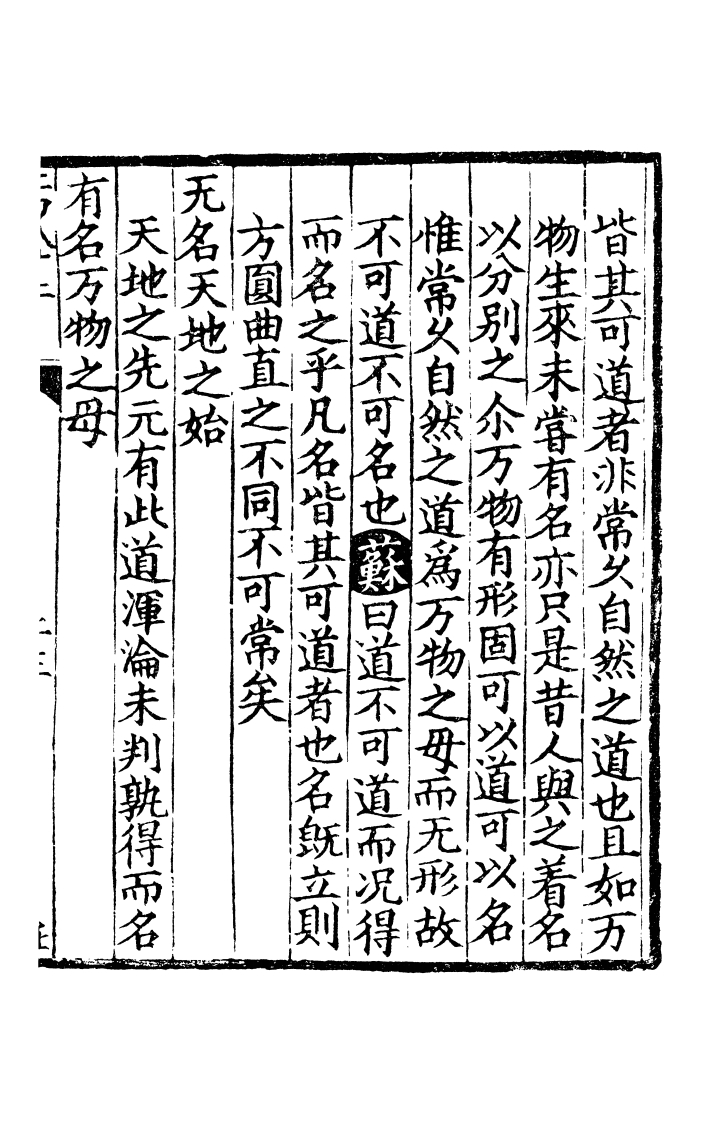 皆其可道者非常乆自然之道也且如万
物生來未嘗有名亦只是昔人與之着名
以分别之尒万物有形固可以道可以名
惟常乆自然之道爲万物之母而无形故
不可道不可名也蘇曰道不可道而况得
而名之乎凡名皆其可道者也名旣立則
方圎曲直之不同不可常矣
无名天地之始
天地之先元有此道渾淪未判孰得而名
有名万物之母